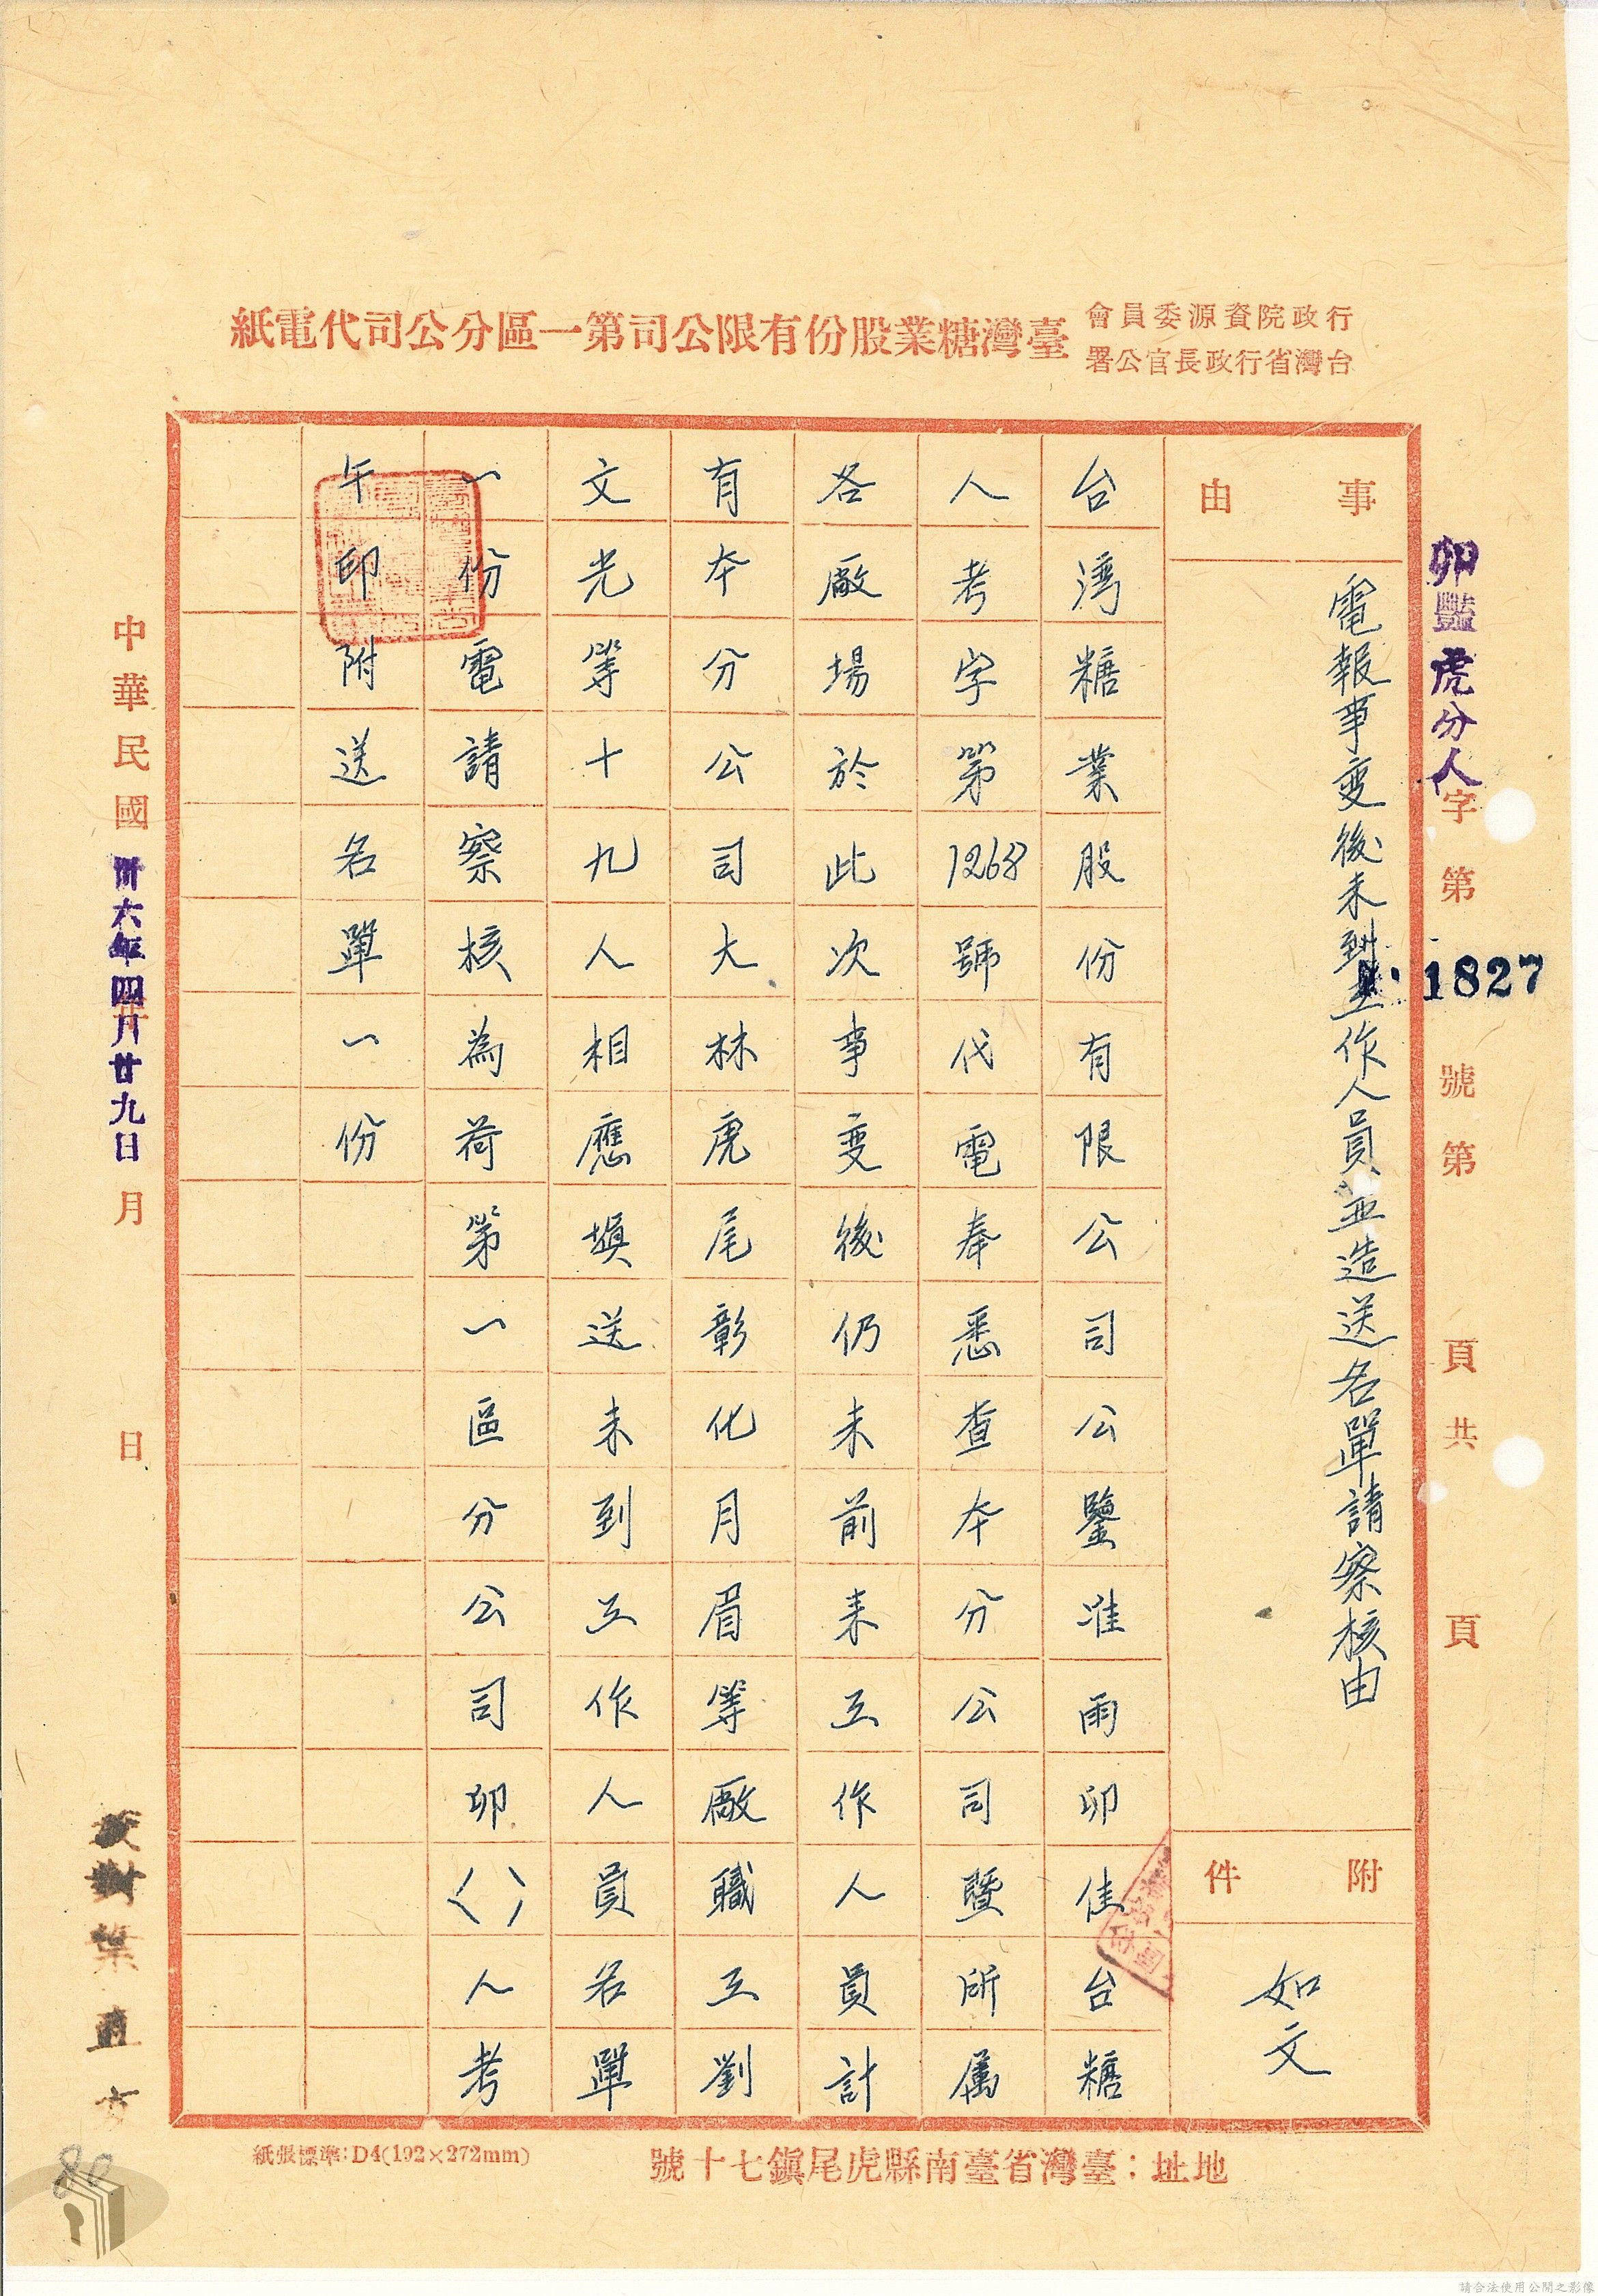 行政院資源委員會
台灣省行政長官公署
臺灣糖業股份有限公司第一區分公司代電紙
卯豔虎分人字第1827號第 頁共 頁
事由
電報事变後未到工作人員並造送名單請察核由
附件
如文
台湾糖業股份有限公司公鑒准雨卯佳台糖
人考字第1268號代電奉悉查本分公司暨所属
各廠場於此次事变後仍未前来工作人員計
有本分公司大林虎尾彰化月眉等廠職工劉
文光等十九人相應填送未到工作人員名單
一份電請察核為荷第一區分公司卯()人考
午印附送名單一份
中華民國卅六年四月廿九日 月 日
校對葉直
紙張標準:D4(192×272mm)
地址:臺灣省臺南縣虎尾鎮七十號
80
請合法使用公開之影像